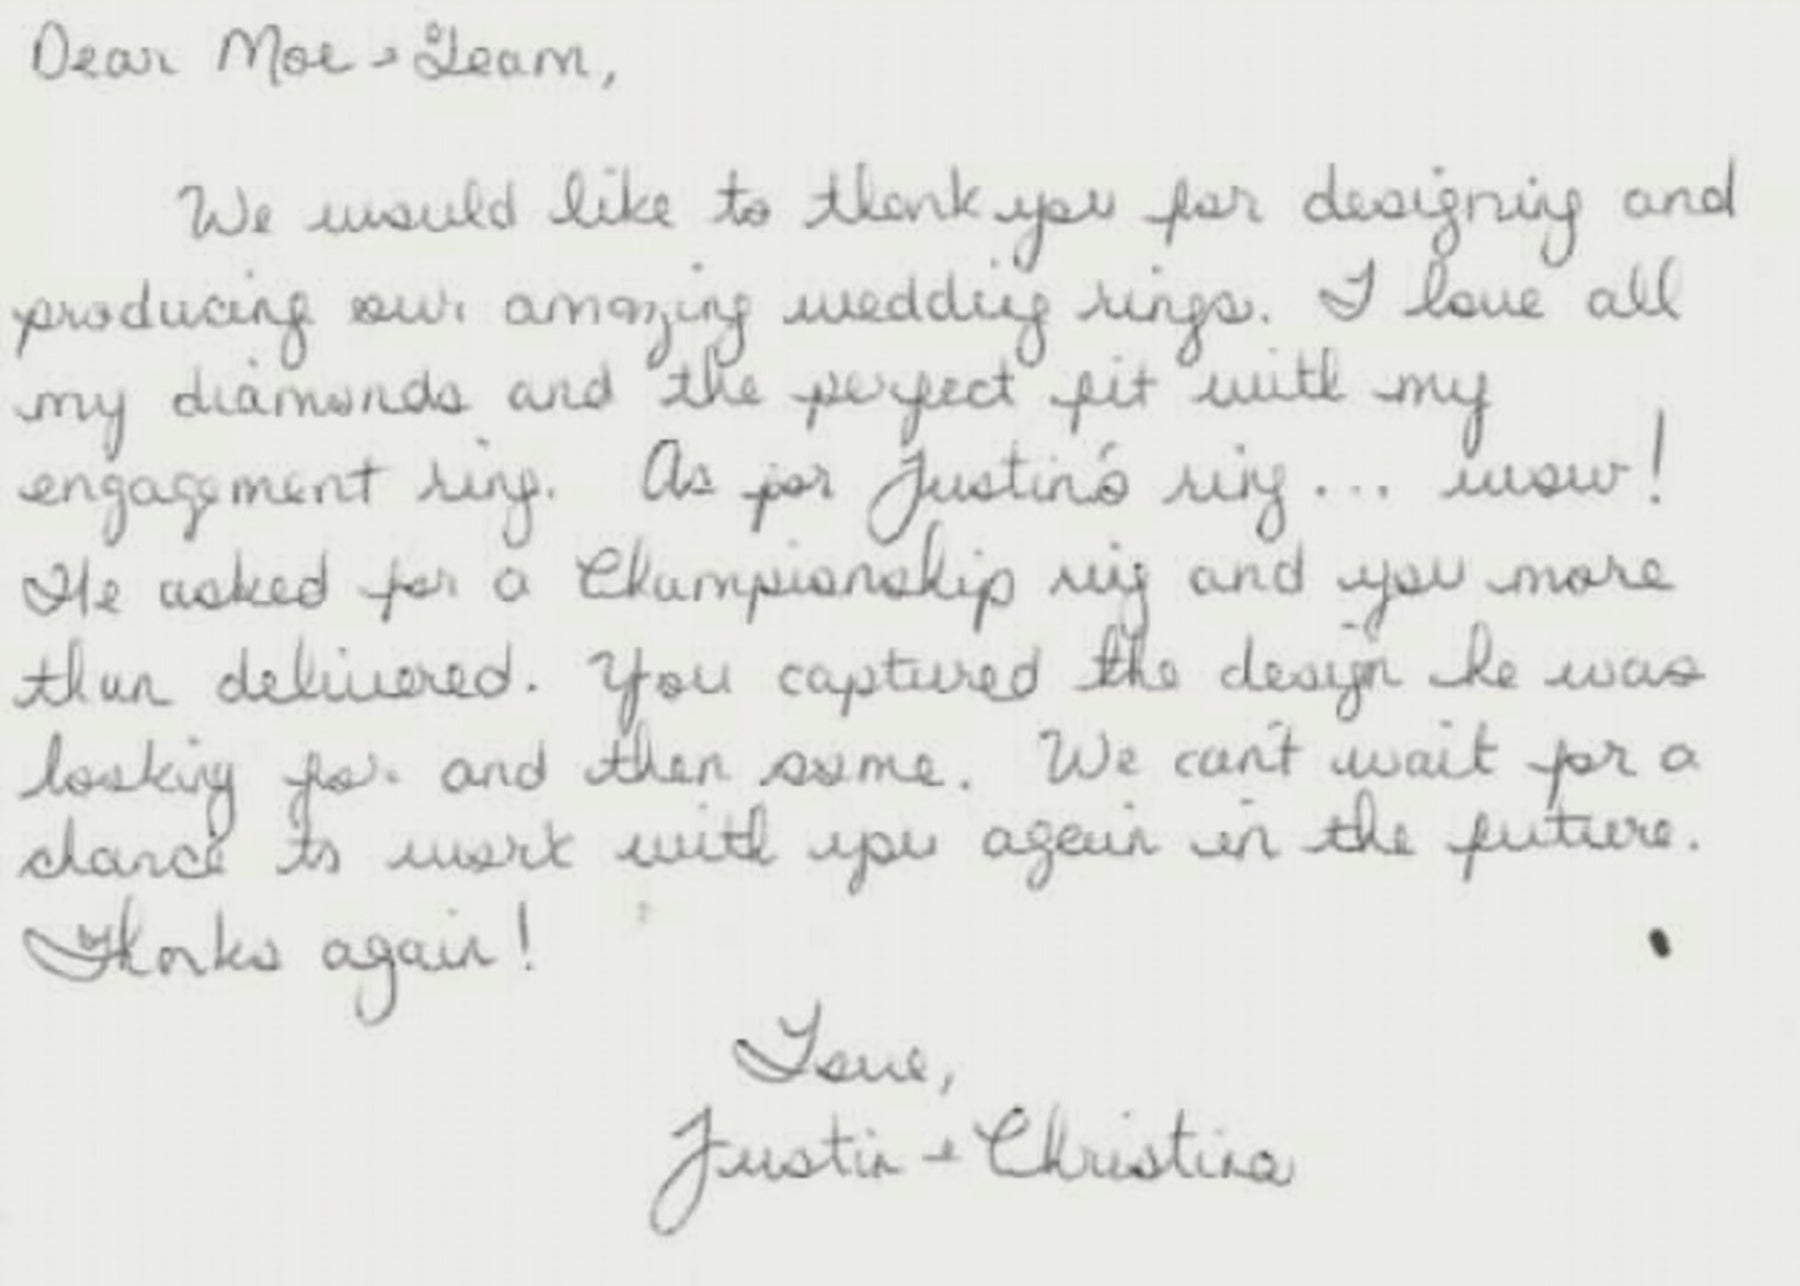 Dear Moe + Team,
We would like to thank you for designing and
producing our amazing wedding rings. I love all
my diamonds and the perfect fit with my
engagement ring. As for Justin's ring... wow!
He asked for a Championship ring and you more
than delivered. You captured the design he was
looking for and then some. We can't wait for a
chance to work with you again in the future.
Thanks again!
Love,
Justin + Christina